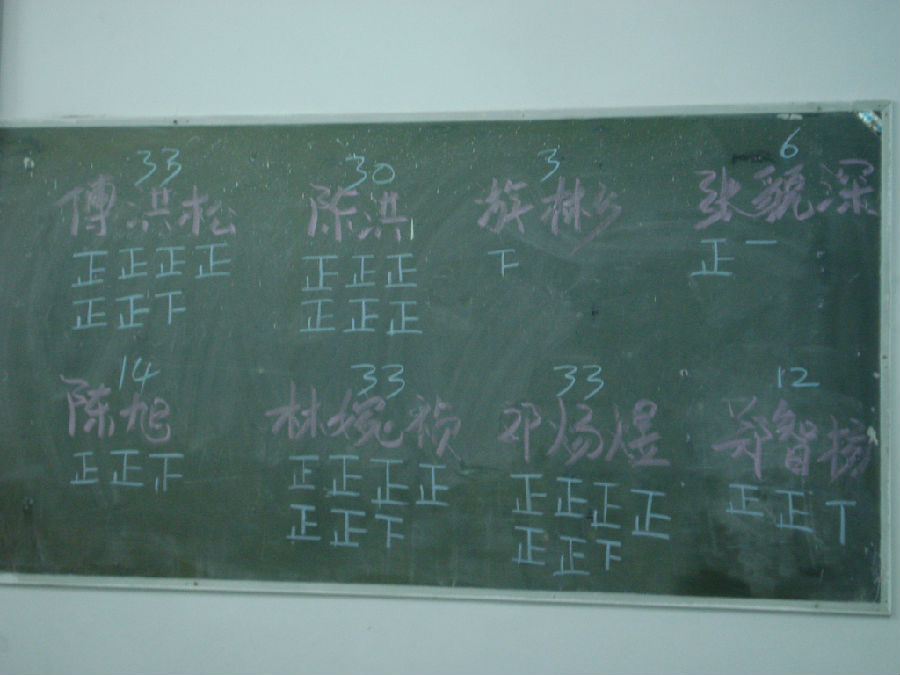 33 30 3 6
傅洪松 陈洪 张毓深
正正正正 正正正 下 正一
正正下 正正正
14 33 33 12
陈旭 林婉祯 邓炀煜 郑智扬
正正下 正正正正 正正正正 正正丅
正正下 正正下